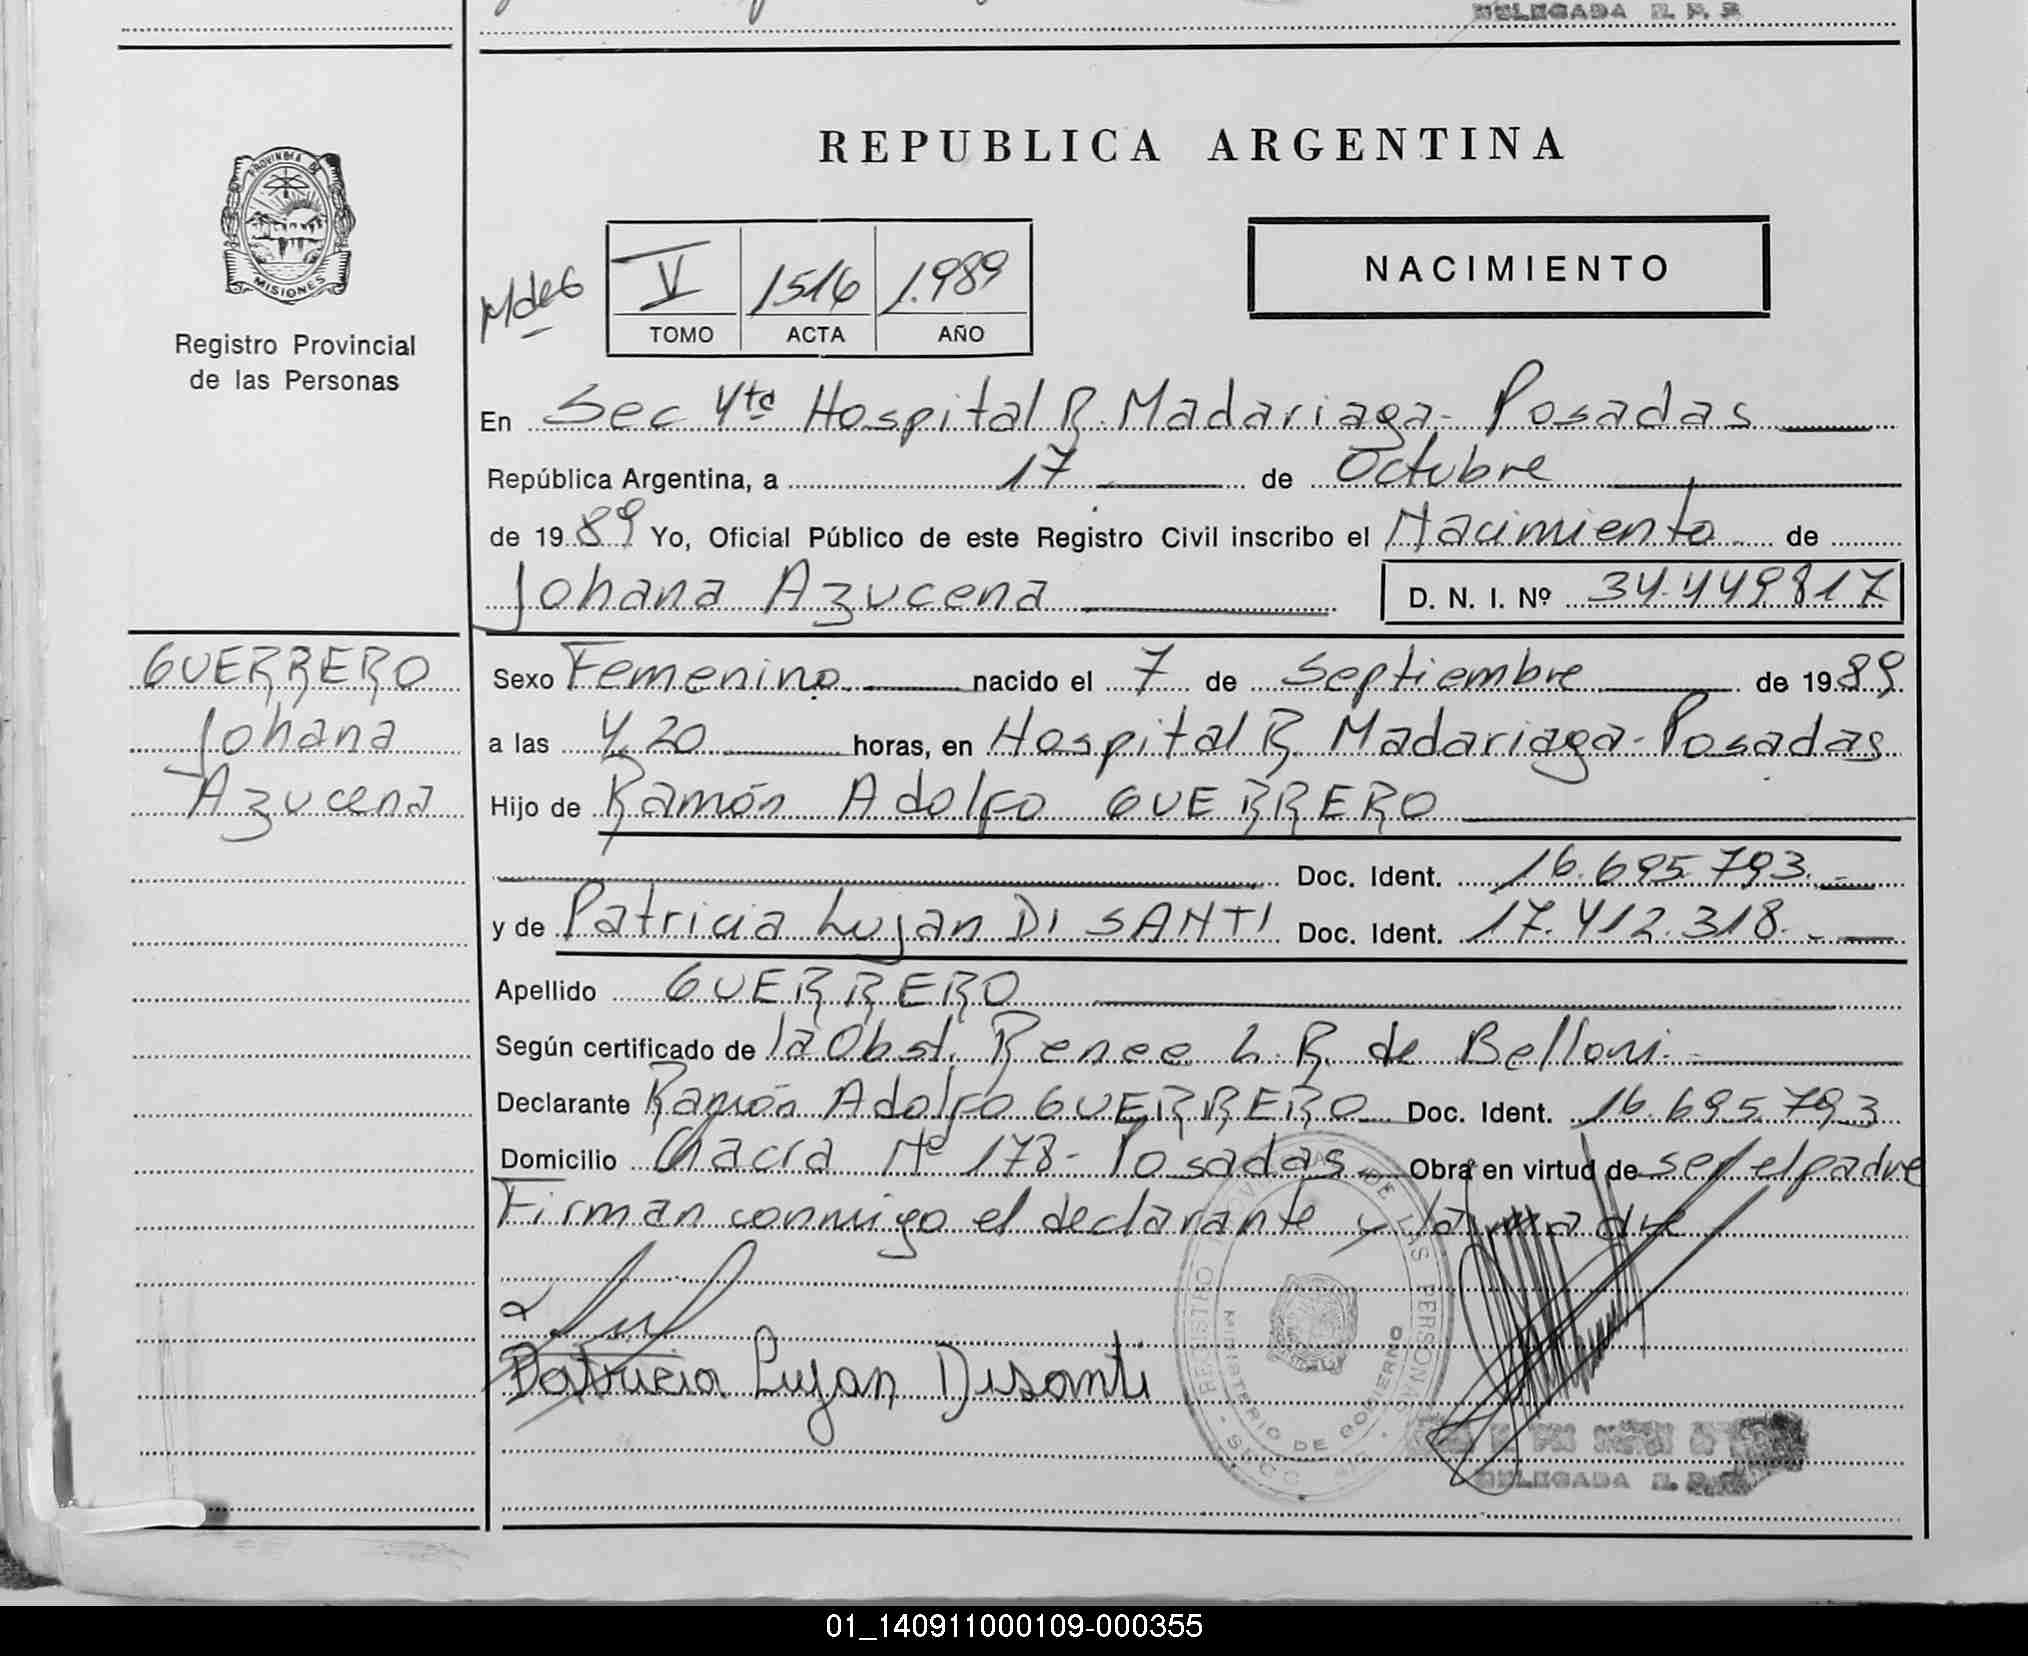 DELEGADA R. P. P.
REPUBLICA ARGENTINA
PROVINCIA DE
MISIONES
Registro Provincial
de las Personas
V 1516 1.989
TOMO ACTA AÑO
NACIMIENTO
En Sec 4ta Hospital R. Madariaga - Posadas
República Argentina, a 17 de Octubre
de 1989 Yo, Oficial Público de este Registro Civil inscribo el Nacimiento de
Johana Azucena D. N. I. Nº 34.449817
GUERRERO
Johana
Azucena
Sexo Femenino nacido el 7 de Septiembre de 1989
a las 4,20 horas, en Hospital R. Madariaga - Posadas
Hijo de Ramón Adolfo GUERRERO
Doc. Ident. 16.695.793.-
y de Patricia Lujan DI SANTI Doc. Ident. 17.412.318.-
Apellido GUERRERO
Según certificado de la Obst. Renee L. R. de Belloni.-
Declarante Ramón Adolfo GUERRERO Doc. Ident. 16.695.793
Domicilio Chacra Nº 178 - Posadas Obra en virtud de ser el padre
Firman conmigo el declarante y la madre
Patricia Lujan Disanti
REGISTRO PROVINCIAL DE LAS PERSONAS
MINISTERIO DE GOBIERNO
DELEGADA R. P.
01_140911000109-000355